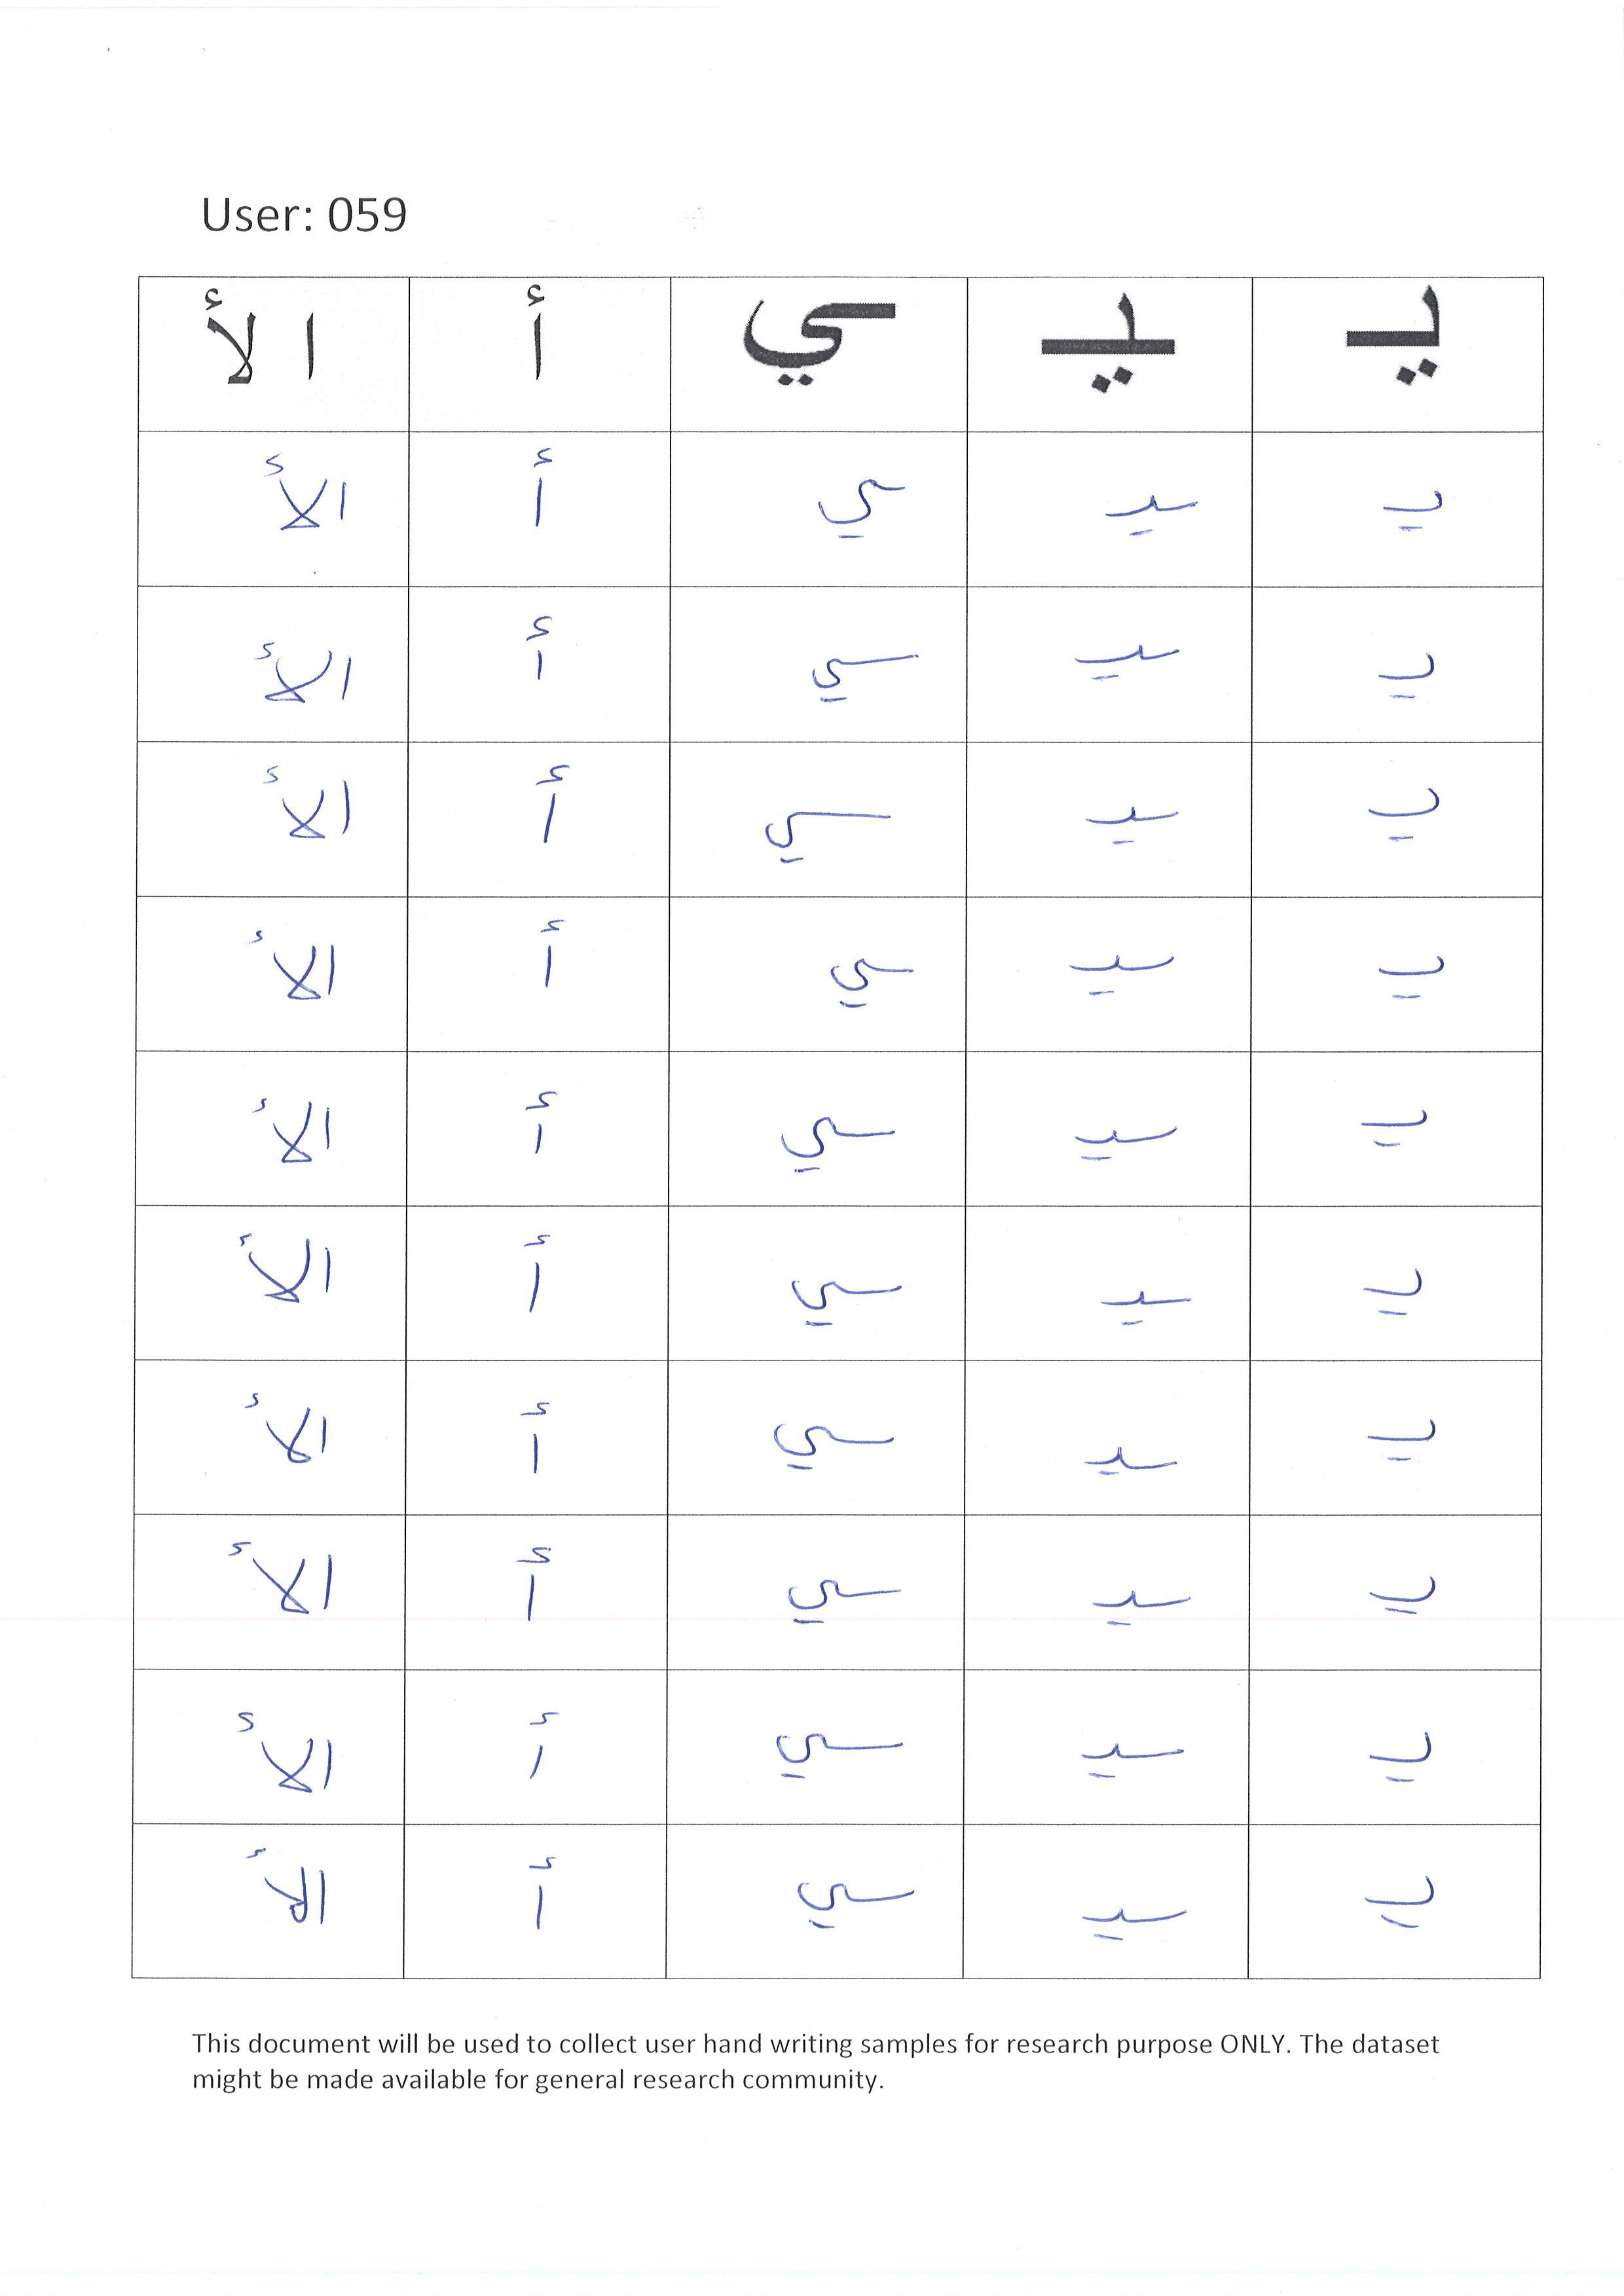 User: 059
يـ ـيـ ـي أ الأ
يـ ـيـ ـي أ الأ
يـ ـيـ ـي أ الأ
يـ ـيـ ـي أ الأ
يـ ـيـ ـي أ الأ
يـ ـيـ ـي أ الأ
يـ ـيـ ـي أ الأ
يـ ـيـ ـي أ الأ
يـ ـيـ ـي أ الأ
يـ ـيـ ـي أ الأ
يـ ـيـ ـي أ الأ
This document will be used to collect user hand writing samples for research purpose ONLY. The dataset
might be made available for general research community.